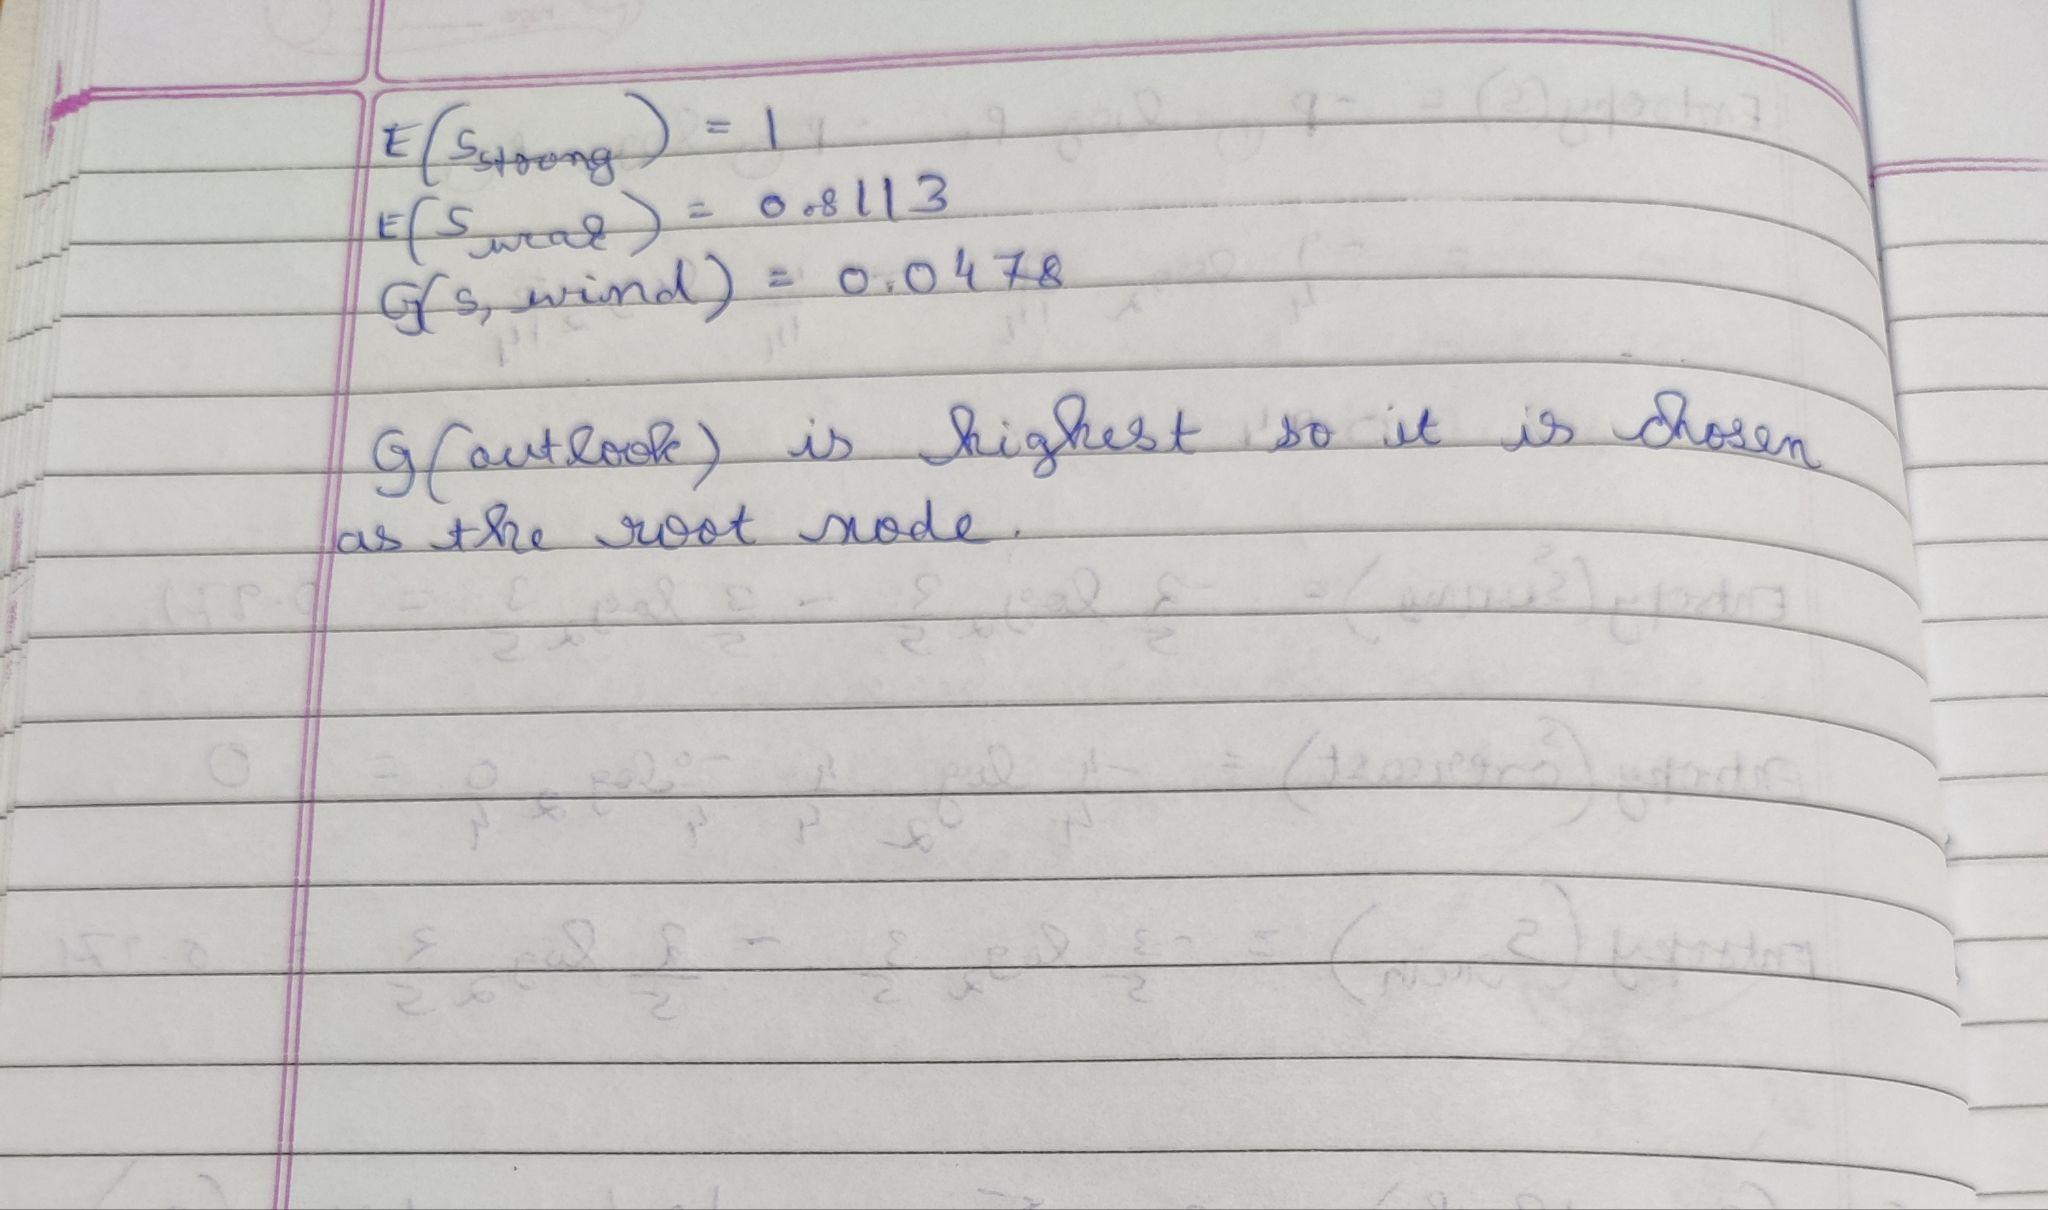 E(S strong) = 1
E(S weak) = 0.8113
G(S, wind) = 0.0478
G(outlook) is highest so it is chosen
as the root node.